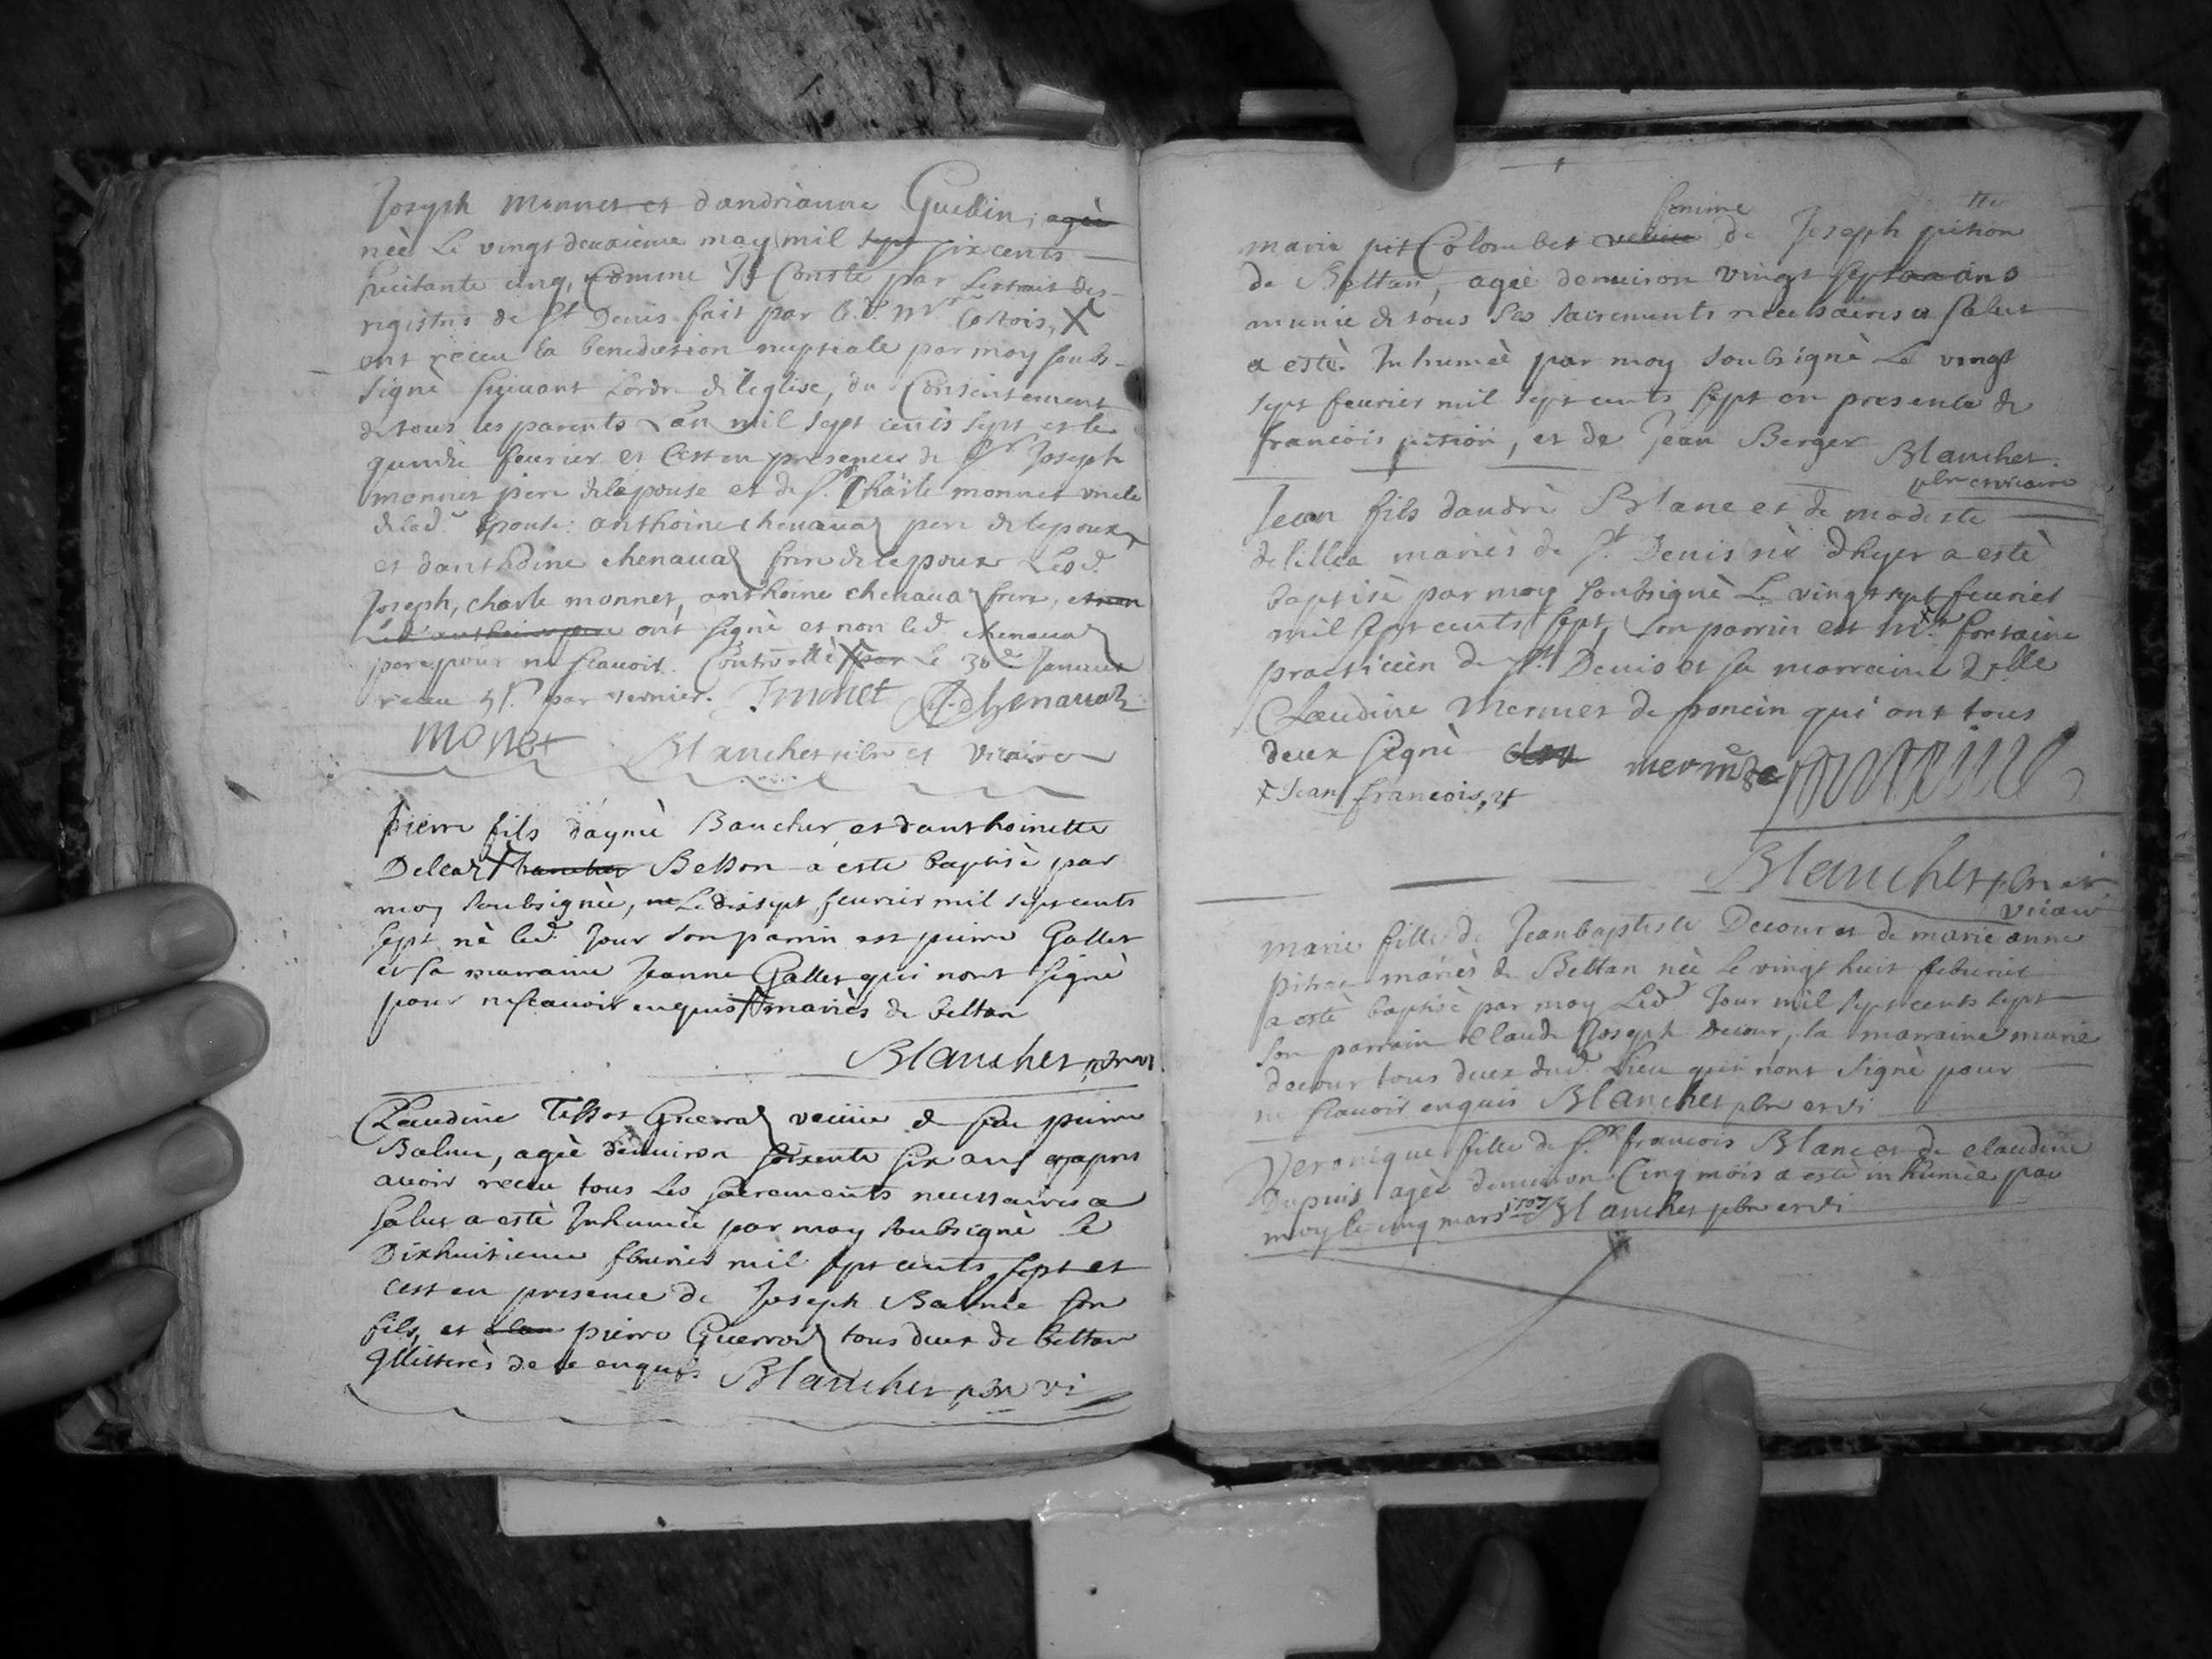 Joseph monnet et dandrianne Guellin, agèe
nèe Le vingt deuxieme may mil sept six cents
huitante cinq, comme Il Conste par Lextrait des
registres de St Denis fait par
ont receu la benediction nuptiale par moy soubs
signè suivant Lordre de leglise, du Consentement
de tous les parents Lan mil sept cents sept et le
fevrier et Cest en presences de Sr Joseph
monnet pere de lepouse et de Sr Charle monnet oncle
de lad. Epouse: anthoine chenavaz pere de lepoux
et danthoine chenavaz frere de lepoux Lesd.
Joseph, charle monnet, anthoine chenavaz frere, et non
Led anthoine pere ont signè et non led. chenavaz
pere pour ne scavoir. Controllè par Le 30e Janvier
receu 5 s. par vernier. Jmonet Chenavaz
monet Blanchet pbre et vicaire
pierre fils daymè Baucher et danthoinette
Delcaz Besson a este baptisè par
moy soubsignèe, ne Le dixsept fevrier mil sept cents
sept nè led. Jour son parrin est pierre Gallet
et sa marraine Jeanne Gallet qui nont signè
pour ne scavoir enquis mariès de bettan
Blanchet pbre vi
Claudine Tissot Guerraz veuve de feu pierre
Balme, agèe denviron soixente six ans et apres
avoir receu tous Les sacrements necessaires a
salut a estè Inhumèe par moy soubsignè le
Dixhuitieme febvrier mil sept cents sept et
cest en presence de Joseph Balme son
fils, et pierre Guerraz tous deux de bettan
Illitterès de ce enquis Blanchet pbre vi
femme tte
marie pit Colombet veuve de Joseph pition
de Bettan, agèe denviron vingt sept ans
munie de tous Les sacrements necessaires a salut
a estè Inhumèe par moy soubsignè Le vingt
sept fevrier mil sept cents sept en presence de
francois pition, et de Jean Berger Blanchet
pbre et vicaire
Jean fils dandrè Blanc et de modeste
de lillia mariès de St Denis nè dhyer a estè
baptisè par moy soubsignè Le vingt sept fevrier
mil sept cents sept, son parrin est Mr fontaine
practicien de St Denis et sa marraine dlle
Claudine Mermet de poncin qui ont tous
deux signè mermet fontaine
x Jean francois, x
Blanchet pbre et
vicair
marie fille de Jeanbaptiste Decour et de marie anne
pitre mariès de Bettan nèe Le vingt huit febvrier
a estè baptisè par moy Led. Jour mil sept cents sept
son parrain Claude Joseph decour, la marraine marie
decour tous deux dud. Lieu qui nont signè pour
ne scavoir enquis Blanchet pbre et vi
Veronique fille de Sr francois Blanc et de claudine
Dupuis agèe denviron Cinq mois a estè inhumèe par
moy le cinq mars 1707 Blanchet pbre et vi